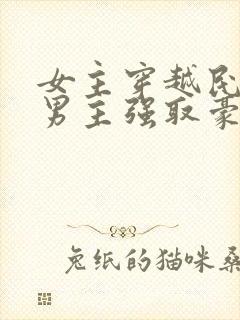 女主穿越民
男主强取豪
兔纸的猫咪桑